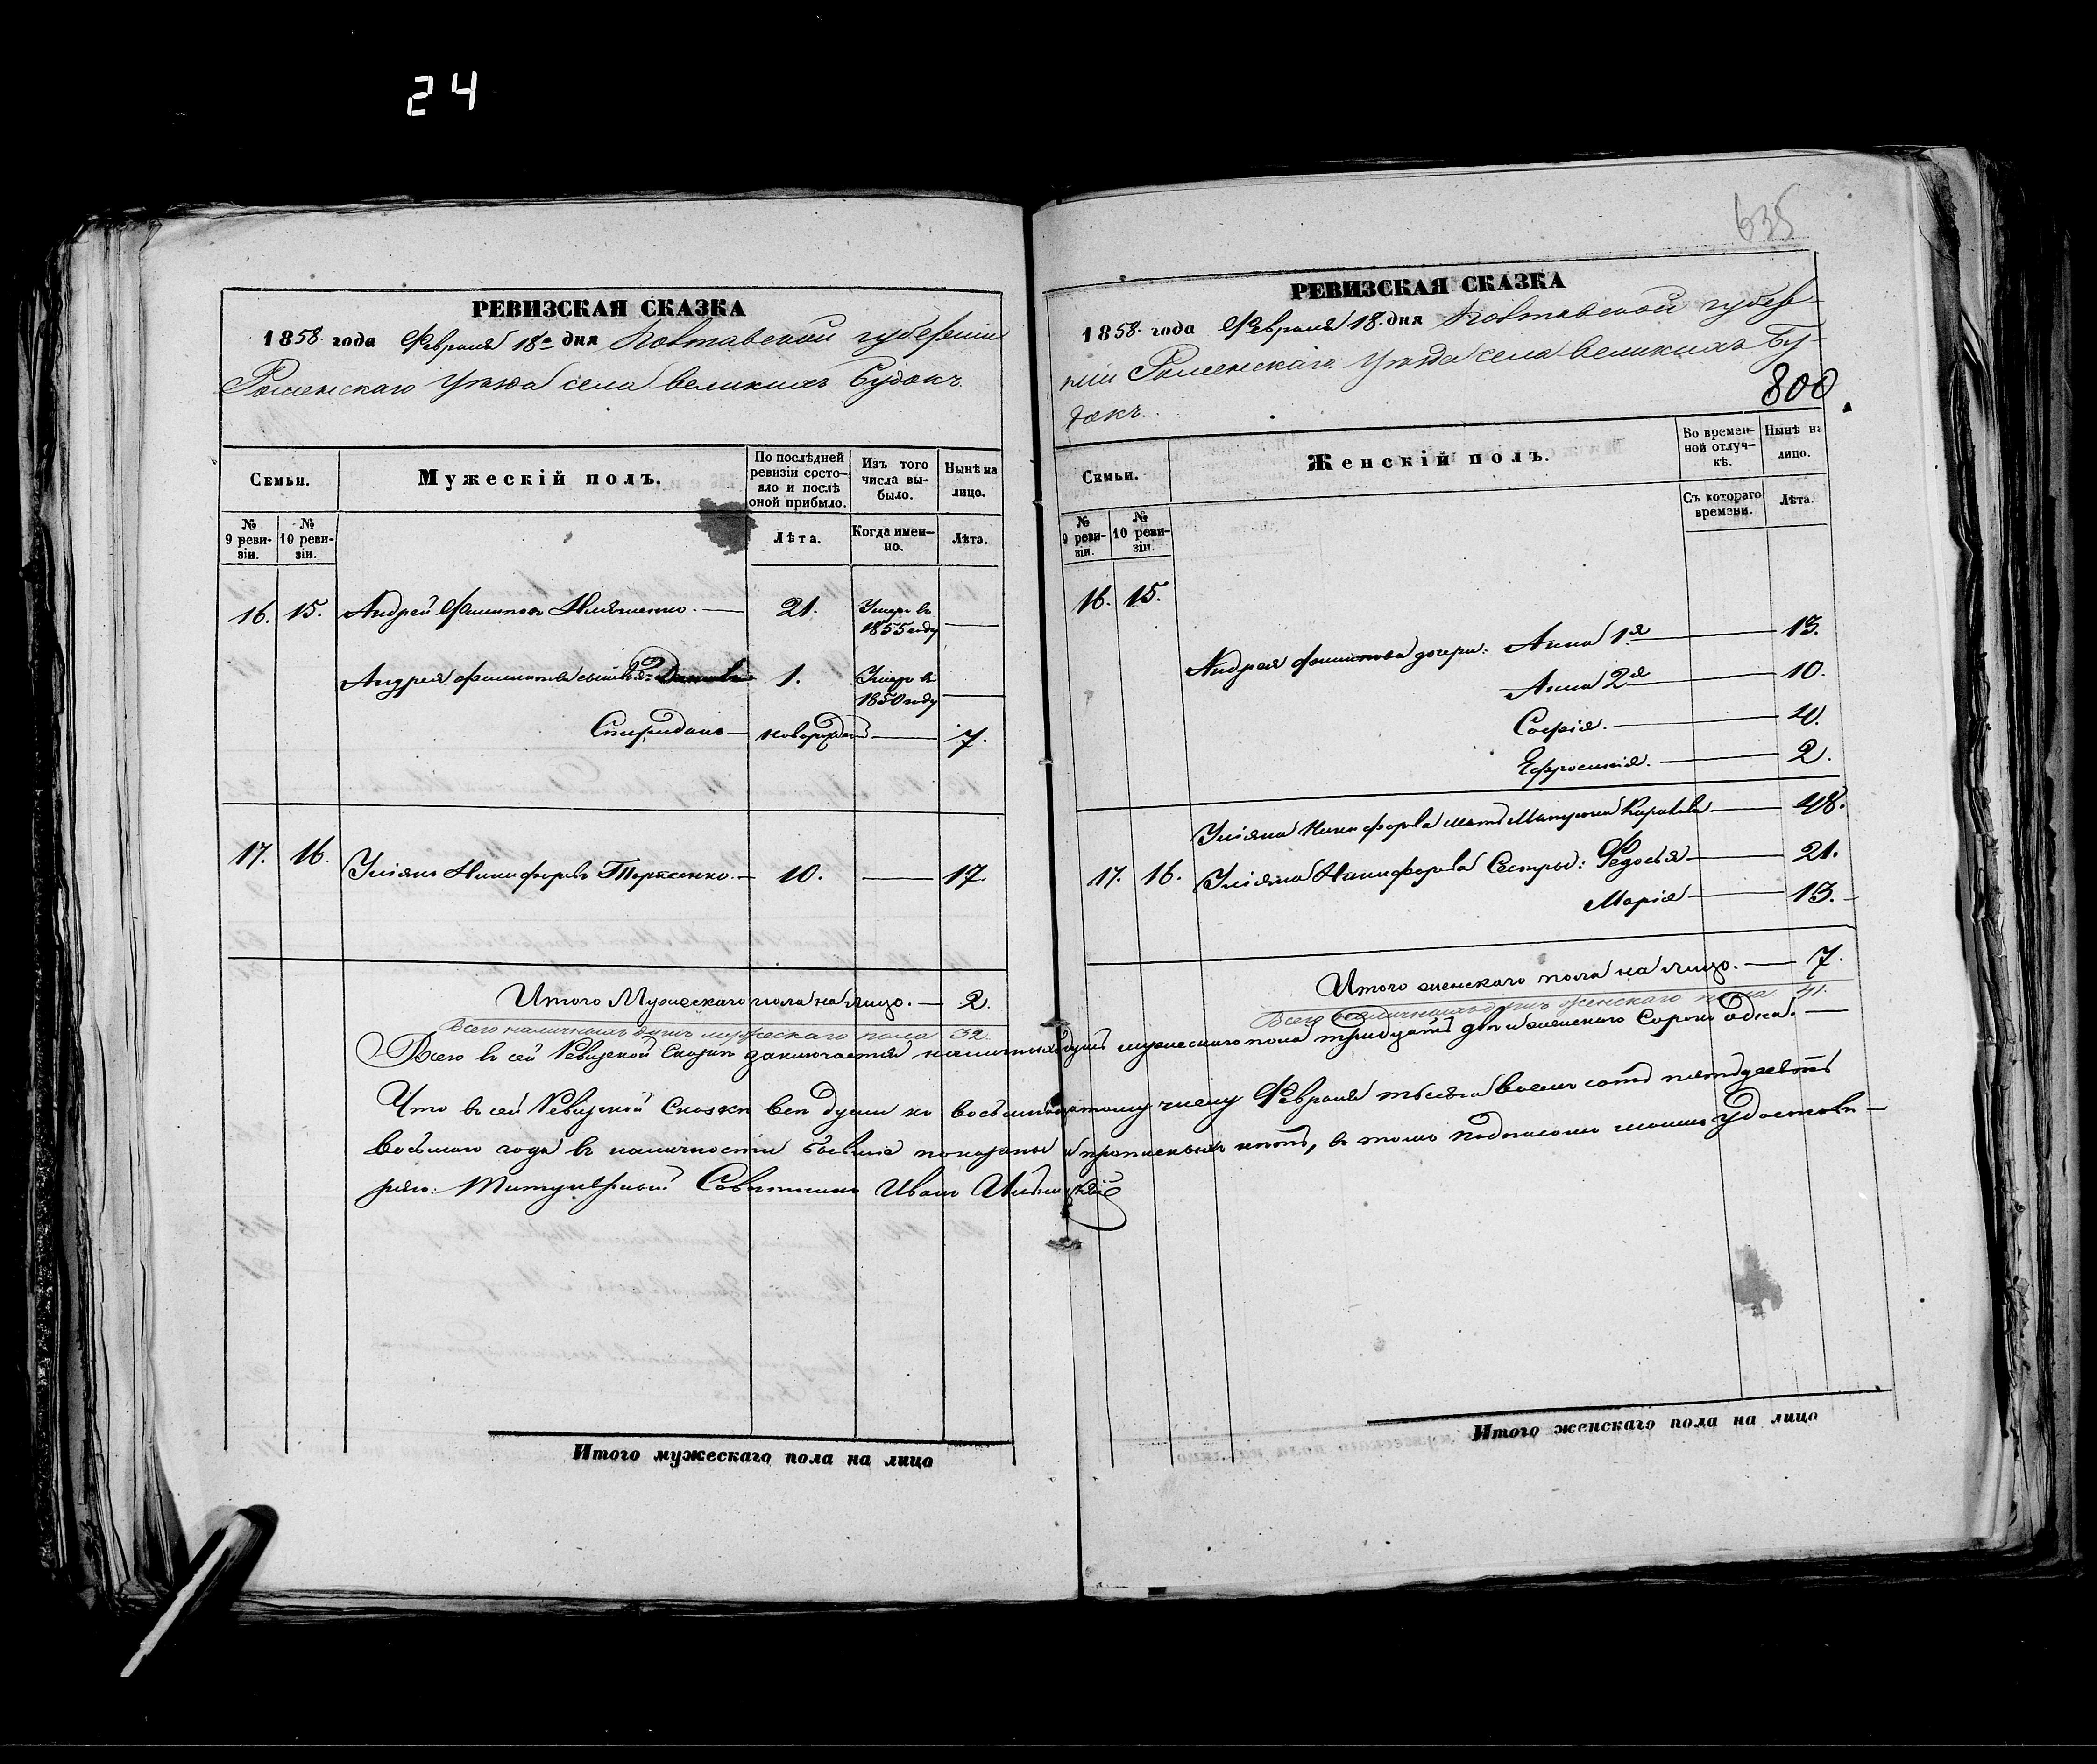 24
РЕВИЗСКАЯ СКАЗКА
1858 года Февраля 18го дня Полтавской губерніи
Роменскаго Уѣзда села великихъ Будокъ
Семьи.
Мужескій полъ.
По послѣдней ревизіи состояло и послѣ оной прибыло.
Изъ того числа выбыло.
Нынѣ на лицо.
№ 9 ревизіи.
№ 10 ревизіи.
Лѣта.
Когда именно.
Лѣта.
16. 15. Андрей 21. Умеръ въ
1855 году
Андрея сыновья: 1. Умеръ въ
1850 году
Спиридонъ новорожден 7.
17. 16. Уліянъ Никифоровъ 10. 17.
Итого Мужескаго пола на лицо. 2.
Всего наличныхъ душъ мужескаго пола 32.
Итого мужескаго пола на лицо
635
РЕВИЗСКАЯ СКАЗКА
1858 года Февраля 18 дня Полтавской губер-
ніи Роменскаго Уѣзда села великихъ Бу-
докъ.
800
Семьи.
Женскій полъ.
Во временной отлучкѣ.
Нынѣ на лицо.
№ 9 ревизіи.
№ 10 ревизіи.
Съ котораго времени.
Лѣта.
16. 15.
Андрея дочери: Анна 1я 13.
Анна 2я 10.
Софія. 4.
Ефросинія. 2.
Уліяна Никифорова мать 48.
17. 16. Уліяна Никифорова Сестры: Федосья 21.
Марія 13.
Итого женскаго пола на лицо. 7.
Всего наличныхъ душъ женскаго пола 41.
Всего въ сей Ревизской Сказкѣ заключается наличныхъ душъ мужескаго пола тридцать двѣ и женскаго Сорокъ одна.
Что въ сей Ревизской Сказкѣ всѣ души къ восьмнадцатому числу Февраля тысяча восемь сотъ пятдесятъ
восьмаго года въ наличности бывшіе показаны и прописныхъ нѣтъ, въ томъ подписомъ моимъ Удостовѣ-
ряю: Титулярный Совѣтникъ Иванъ
Итого женскаго пола на лицо